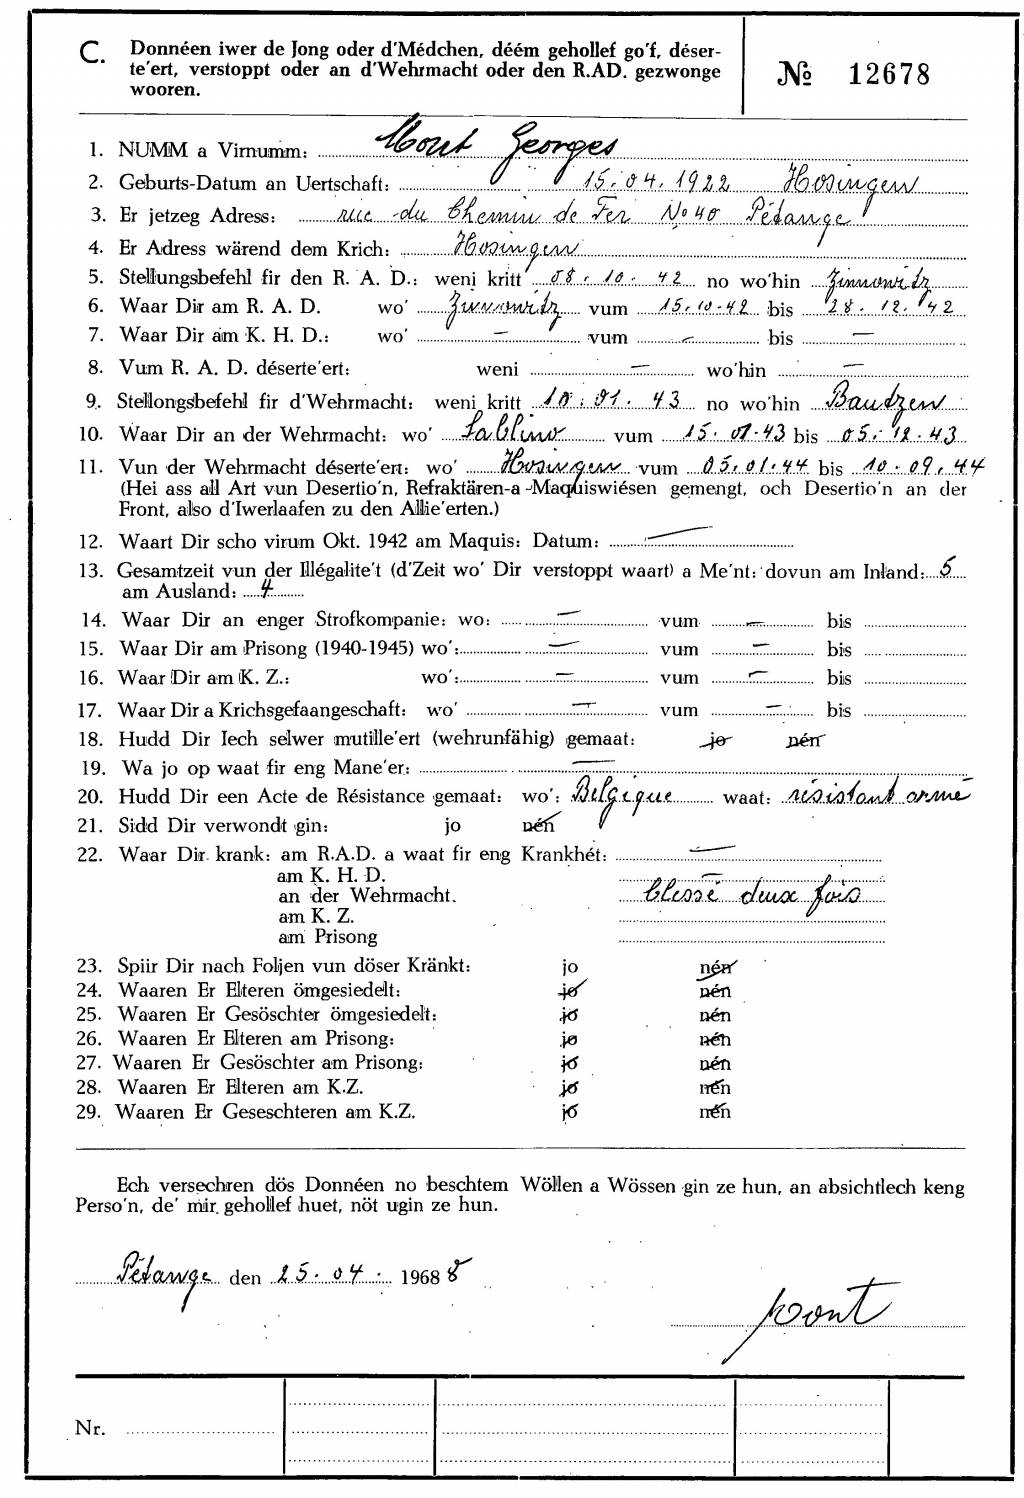 C. Donnéen iwer de Jong oder d'Médchen, déém gehollef go'f, déser-
te'ert, verstoppt oder an d'Wehrmacht oder den R.AD. gezwonge
wooren.
№ 12678
1. NUMM a Virnumm: Mont Georges
2. Geburts-Datum an Uertschaft: 15.04.1922 Hosingen
3. Er jetzeg Adress: rue du Chemin de Fer No 40 Pétange
4. Er Adress wärend dem Krich: Hosingen
5. Stellungsbefehl fir den R. A. D.: weni kritt 08.10.42 no wo'hin Zinnowitz
6. Waar Dir am R. A. D. wo' Zinnowitz vum 15.10.42 bis 28.12.42
7. Waar Dir am K. H. D.: wo' — vum — bis —
8. Vum R. A. D. déserte'ert: weni — wo'hin —
9. Stellongsbefehl fir d'Wehrmacht: weni kritt 10.01.43 no wo'hin Bautzen
10. Waar Dir an der Wehrmacht: wo' Sablino vum 15.01.43 bis 05.12.43
11. Vun der Wehrmacht déserte'ert: wo' Hosingen vum 05.01.44 bis 10.09.44
(Hei ass all Art vun Desertio'n, Refraktären-a -Maquiswiésen gemengt, och Desertio'n an der
Front, also d'Iwerlaafen zu den Allie'erten.)
12. Waart Dir scho virum Okt. 1942 am Maquis: Datum: —
13. Gesamtzeit vun der Illégalite't (d'Zeit wo' Dir verstoppt waart) a Me'nt: dovun am Inland: 5
am Ausland: 4
14. Waar Dir an enger Strofkompanie: wo: — vum — bis
15. Waar Dir am Prisong (1940-1945) wo': — vum — bis
16. Waar Dir am K. Z.: wo': — vum — bis
17. Waar Dir a Krichsgefaangeschaft: wo' — vum — bis
18. Hudd Dir Iech selwer mutille'ert (wehrunfähig) gemaat: jo nén
19. Wa jo op waat fir eng Mane'er: —
20. Hudd Dir een Acte de Résistance gemaat: wo': Belgique waat: résistant armé
21. Sidd Dir verwondt gin: jo nén
22. Waar Dir krank: am R.A.D. a waat fir eng Krankhét: —
am K. H. D. —
an der Wehrmacht. blessé deux fois
am K. Z.
am Prisong
23. Spiir Dir nach Foljen vun döser Kränkt: jo nén
24. Waaren Er Elteren ömgesiedelt: jo nén
25. Waaren Er Gesöschter ömgesiedelt: jo nén
26. Waaren Er Elteren am Prisong: jo nén
27. Waaren Er Gesöschter am Prisong: jo nén
28. Waaren Er Elteren am K.Z. jo nén
29. Waaren Er Geseschteren am K.Z. jo nén
Ech versechren dös Donnéen no beschtem Wöllen a Wössen gin ze hun, an absichtlech keng
Perso'n, de' mir gehollef huet, nöt ugin ze hun.
Pétange den 25.04. 1968 8
Mont
Nr.